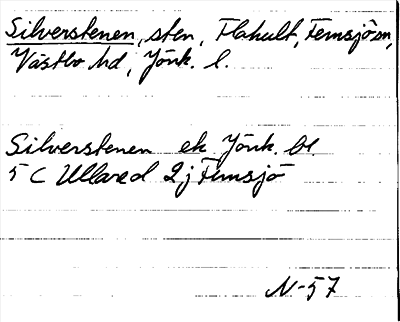 Silverstenen, sten, Flahult, Femsjö sn,
Västbo hd, Jönk. l.
Silverstenen ek Jönk. bl.
5 C Ullared 2j Femsjö
N-57